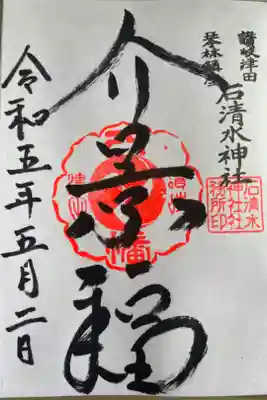 讃岐津田
琴林鎮座
石清水神社
石清水
神社社
務所印
介景福
八幡
令和五年五月二日